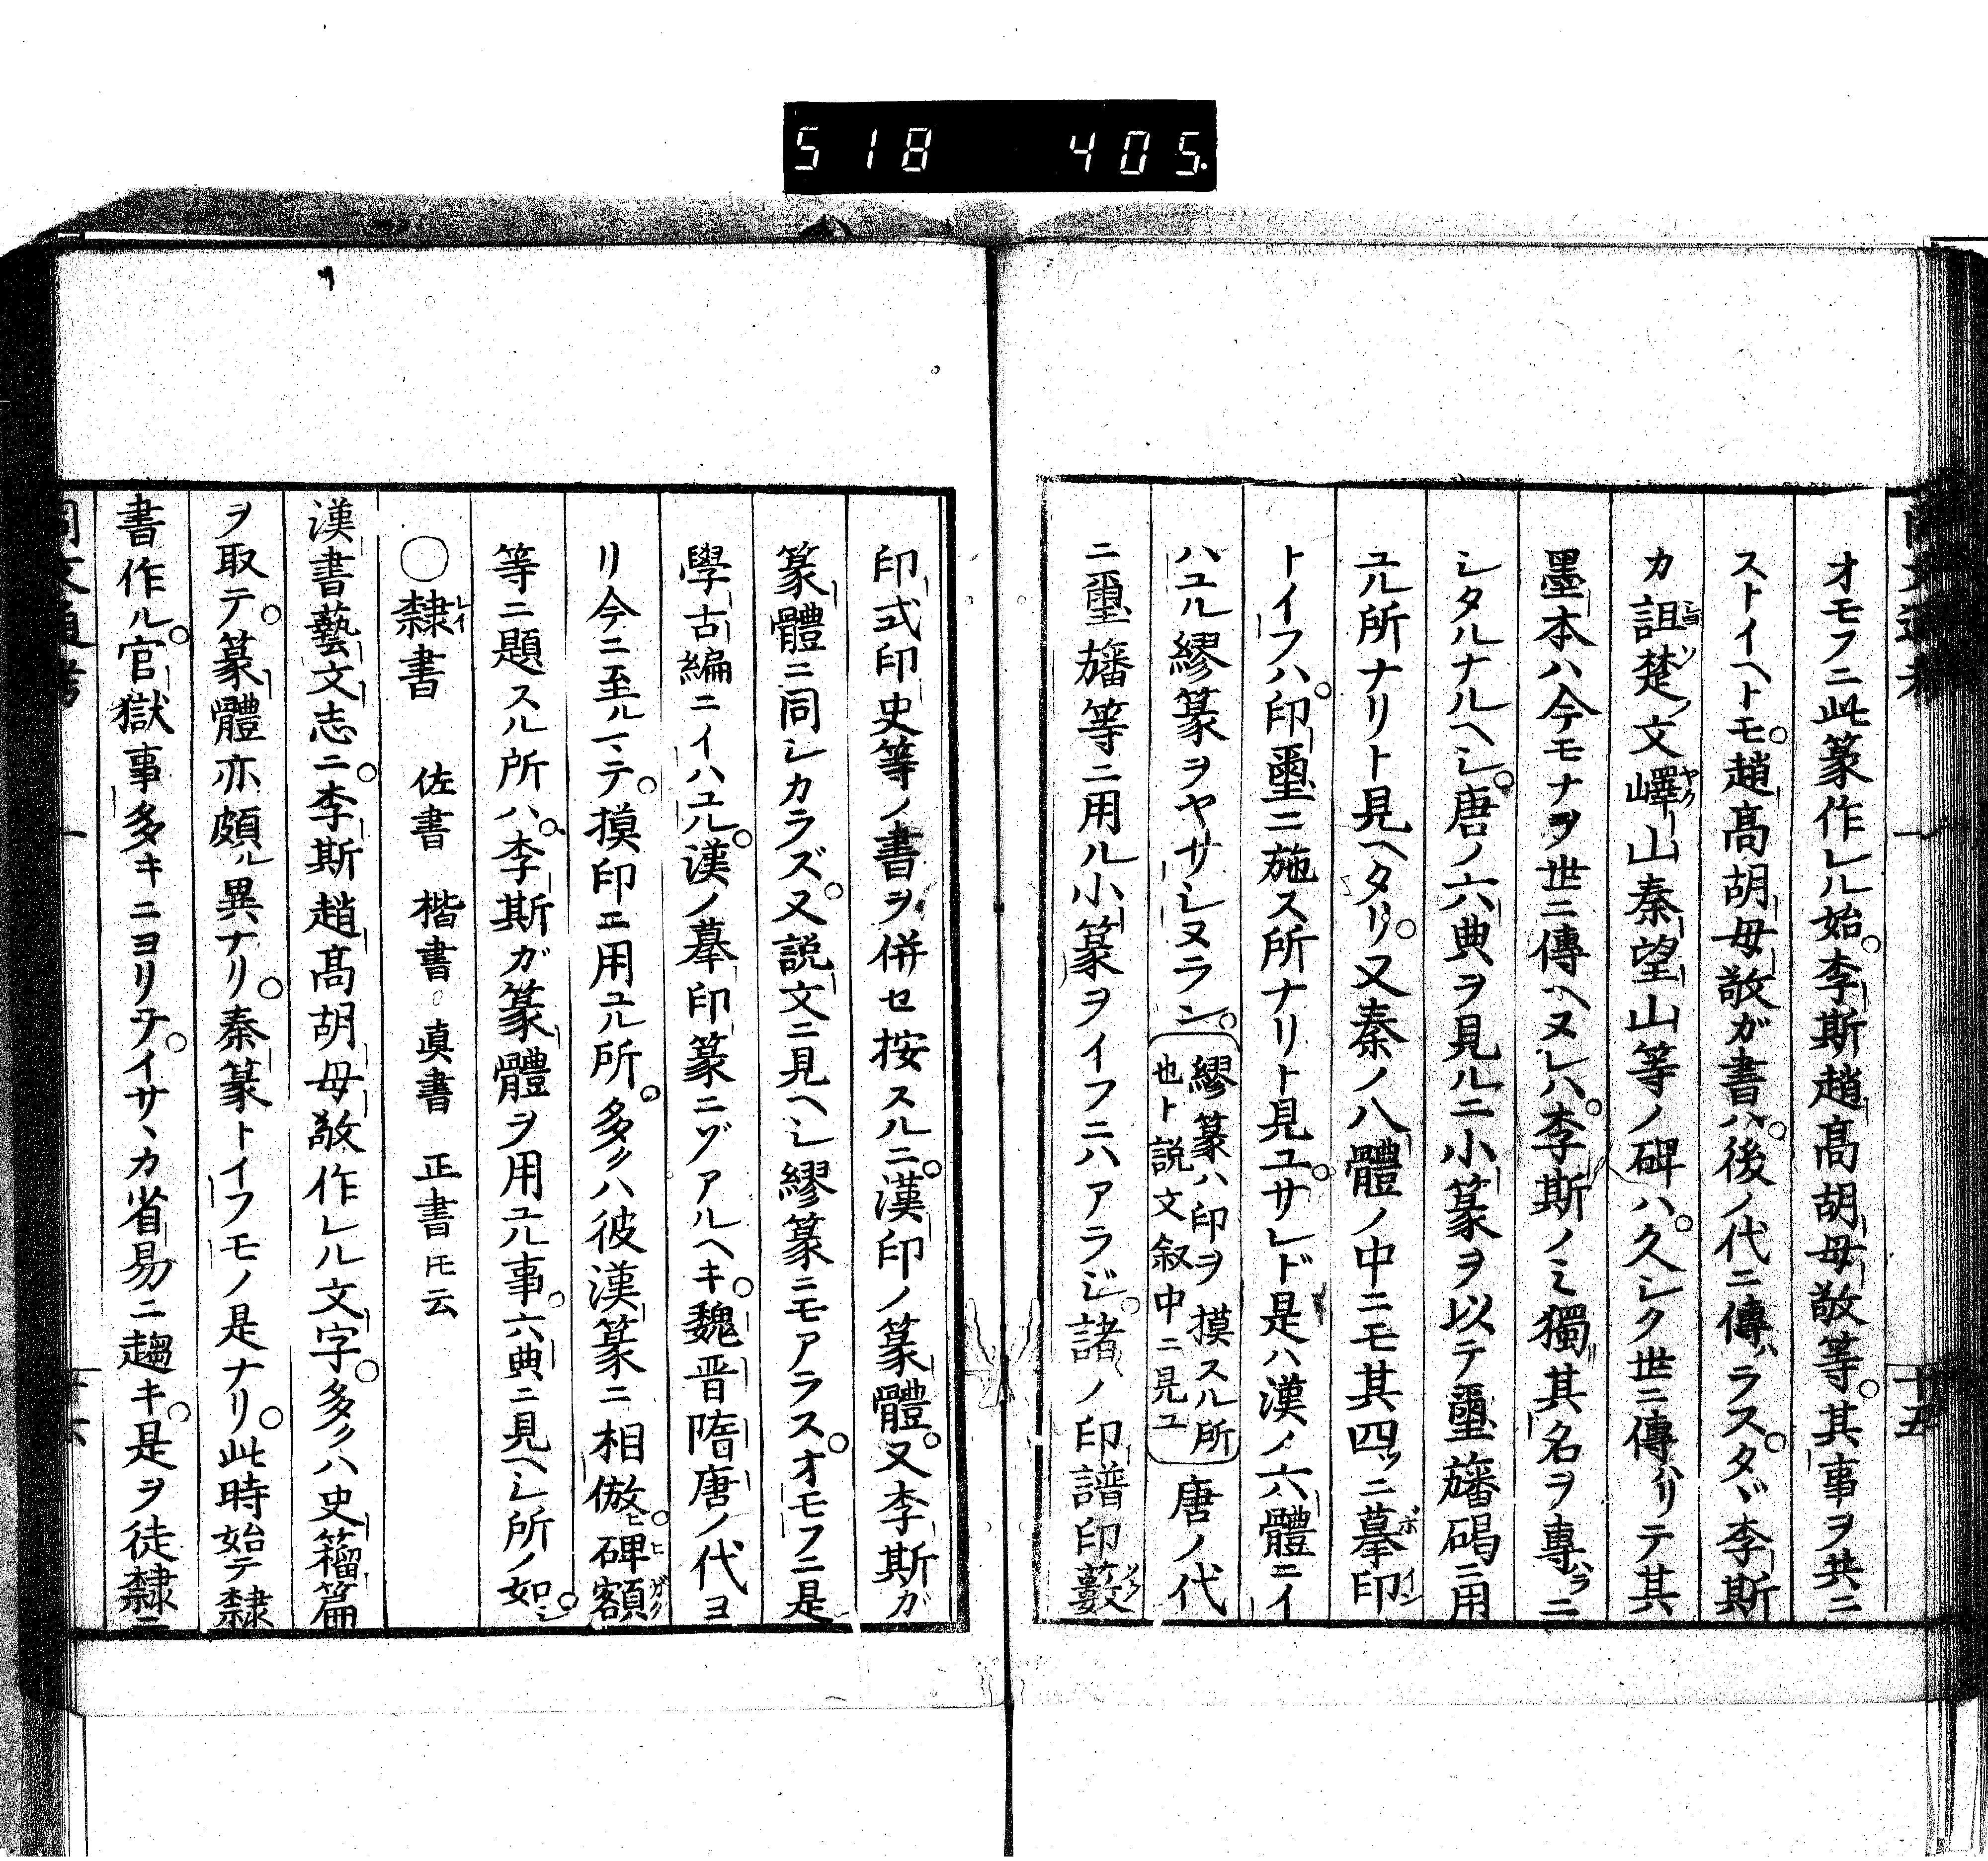 518 405
オモフニ此篆作レル始李斯趙髙胡母敬等其事ヲ共ニ
ストイヘトモ趙髙胡母敬ガ書ハ後ノ代ニ傳ハラスタヾ李斯
カ詛楚文嶧山秦望山等ノ碑ハ久シク世ニ傳ハリテ其
墨本ハ今モナヲ世ニ傳ヘヌレハ李斯ノミ獨リ其名ヲ專ハラニ
シタルナルヘシ唐ノ六典ヲ見ルニ小篆ヲ以テ璽旛碣ニ用
ユル所ナリト見ヘタリ又秦ノ八體ノ中ニモ其四ッニ摹印
トイフハ印璽ニ施ス所ナリト見ユサレド是ハ漢ノ六體ニイ
ハユル繆篆ヲヤサシヌラン
繆篆ハ印ヲ摸スル所
也ト説文叙中ニ見ユ
唐ノ代
ニ璽旛等ニ用ル小篆ヲイフニハアラジ諸ノ印譜印藪
印式印史等ノ書ヲ併セ按スルニ漢印ノ篆體又李斯ガ
篆體ニ同シカラズ又説文ニ見ヘシ繆篆ニモアラスオモフニ是
學古編ニイハユル漢ノ摹印篆ニゾアルヘキ魏晋隋唐ノ代ヨ
リ今ニ至ルマテ摸印ニ用ユル所多クハ彼漢篆ニ相倣ヒ碑額
等ニ題スル所ハ李斯ガ篆體ヲ用ユル事六典ニ見ヘシ所ノ如シ
〇隸書 佐書 楷書 眞書 正書 𪜈云
漢書藝文志ニ李斯趙髙胡母敬作レル文字多クハ史籀篇
ヲ取テ篆體亦頗ル異ナリ秦篆トイフモノ是ナリ此時始テ隸
書作ル官獄事多キニヨリテイサヽカ省易ニ趨キ是ヲ徒隸ニ